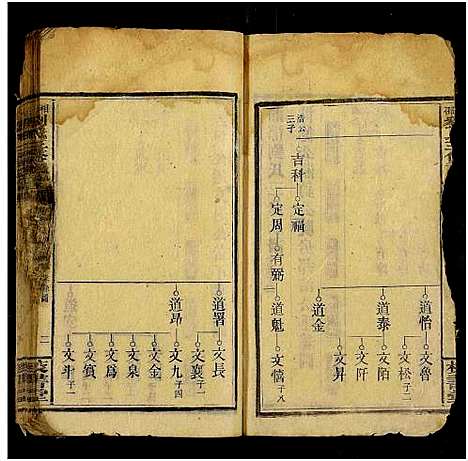 浩公
三子
吉科
定福
定周
有弼
道魁
文僖子八
道怡
道泰
道金
文魯
文松子二
文陌
文阡
文昇
道署
道昂
文長
文襄子一
文九子四
文金
文泉
文為
文質
文斗子一
二